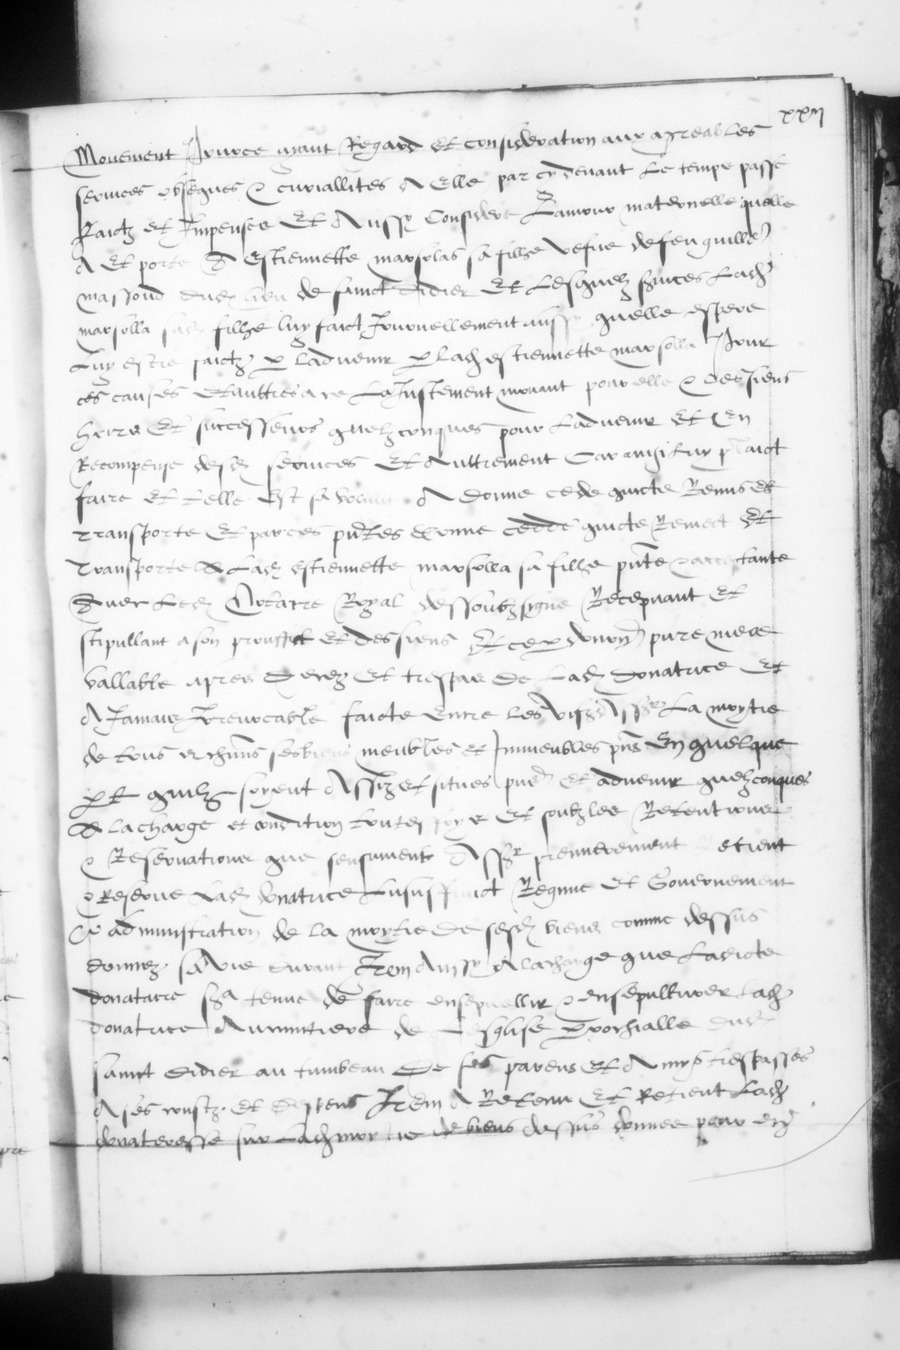 xxɪɪ
Mouement Iceurce ayant Regard et consideration aux agreables
seruices obseques & curiallites A elle par cy deuant Le temps passe
faictz et Impenses Et Aussy Considere Lamour maternelle quelle
A Et porte A Estiennette marsolas sa filhe vefue de feu guillem
massoud dud lieu de sainct didier Et Lesquelz seruices Lad
marsolla sad filhe luy faict Journellement aussy quelle espere
Luy estre faictz p Laduenir p lad estiennette marsolla Pour
ces causes Et aultres a ce La Justement mouant pour elle & des siens
hoirs Et successeurs quelzconques pour Laduenir Et En
Recompense desd seruices Et Aultrement Car ainsi luy plaict
faire Et telle Est sa A donne cede quicte Remis et
transporte Et par ces pntes donne cedde quicte Remect Et
Transporte A Lad estiennette marsolla sa filhe pnte acceptante
Auec Led Notaire Royal dessoubzsigne Recepuant Et
stipullant a son prouffict et des siens Et ce par donaon pure mere
vallable apres deces Et trespas de Lad donatrice Et
A Jamais Irreuocable faicte Entre les vifz Assr La moytie
de tous et chuns ses biens meubles et Immeubles pns En quelque
pt quilz soyent Assiz et situes pns et aduenir quelzconques
A la charge et condition toutes foys Et soubz les Retentions
& Reseruations que sensuiuent Assr premierement Retient
& Reserue Lad donatrice Lusuffruict Regime Et Gouuernement
& administration de la moytie de sesd biens comme dessus
donnez sa vie durant Item Aussy A la charge que Ladicte
donataire sera tenue de faire enseuellir & ensepulturer Lad
donatrice Au cimitiere de Lesglise parrochialle dud
sainct didier au tumbeau De ses parens Et Amys trespasses
A ses coustz et despens Item A Retenu Et Retient Lad
donateresse sur Lad moytie de biens dessus donnee pour en